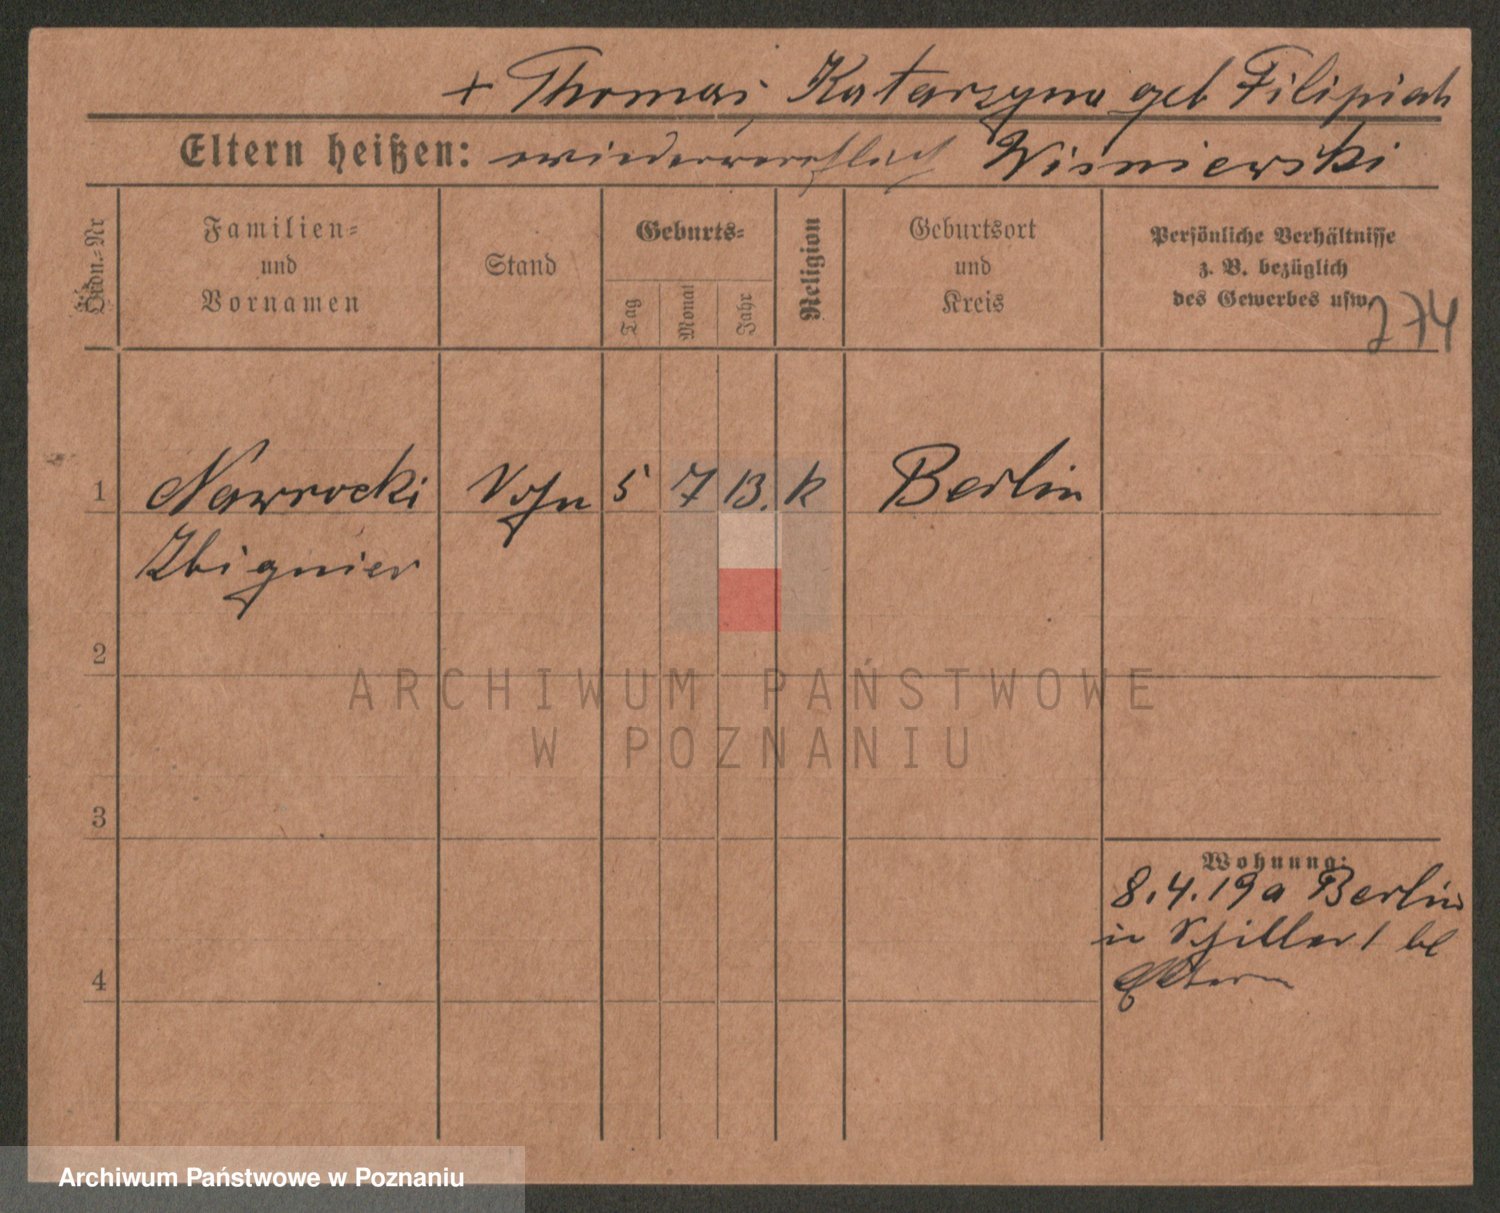 + Thomas, Katarzyna geb Filipiak
Eltern heißen: Wisniewski
Ordn.-Nr
Familien-
und
Vornamen
Stand
Geburts-
Tag
Monat
Jahr
Religion
Geburtsort
und
Kreis
Persönliche Verhältnisse
z. B. bezüglich
des Gewerbes usw.
274
1 Nawrocki Sohn 5 7 13. k Berlin
Zbigniew
2
ARCHIWUM PAŃSTWOWE
W POZNANIU
3
Wohnung:
8.4.19 a Berlin
in Schiller 1 bl
4 Eltern
Archiwum Państwowe w Poznaniu